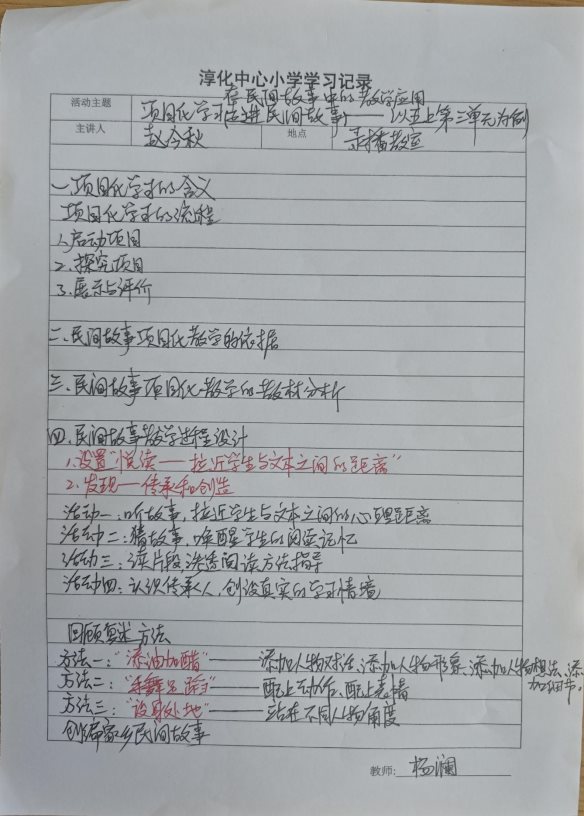 淳化中心小学学习记录
活动主题 项目化学习在民间故事中的教学应用
促进民间故事——以五上第三单元为例
主讲人 赵今秋 地点 录播教室
一、项目化学习的含义
项目化学习的流程
1、启动项目
2、探究项目
3、展示与评价
二、民间故事项目化教学的依据
三、民间故事项目化教学的教材分析
四、民间故事教学进程设计
1、设置“悦读——拉近学生与文本之间的距离”
2、发现——传承和创造
活动一：听故事，拉近学生与文本之间的心理距离
活动二：猜故事，唤醒学生的阅读记忆
活动三：读片段，渗透阅读方法指导
活动四：认识传承人，创设真实的学习情境
回顾复述方法
方法一：“添油加醋”——添加人物对话、添加人物形象、添加人物想法、添加细节。
方法二：“手舞足蹈”——配上动作、配上表情
方法三：“设身处地”——站在不同人物角度
创编家乡民间故事
教师：杨澜